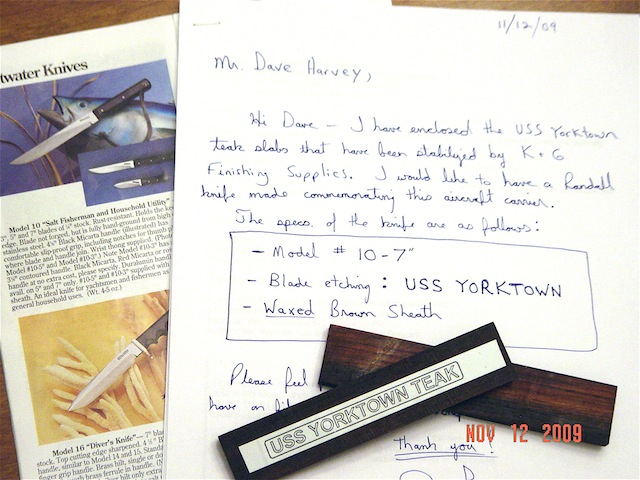 twater Knives
Model 10 "Salt Fisherman and Household Utility"
3", 5" and 7" blades of ⅛" stock. Rust-resistant. Holds the
edge. Blade not forged, but is fully hand-ground from high
stainless steel. 4½" Black Micarta handle (illustrated) has
comfortable slip-proof grip, including notches for thumb
where blade and handle join. Wrist thong supplied. (Photo
Model #10-5" and Model #10-3") Note Model #10-3" has
contoured handle. Black Micarta, Red Micarta or
handle at no extra cost, please specify. Duralumin
avail. on 5" and 7" only. #10-5" and #10-3" supplied with
sheath. An ideal knife for yachtsmen and fishermen as
general household uses. (Wt. 4-5 oz.)
Model 16 "Diver's Knife"— 7" bla
stock. Top cutting edge sharpened. 4 ½" B
handle, similar to Model 14 and 15. Stand
finger grip handle. Brass hilt, single or do
through brass ferrule in handle.
11/12/09
Mr. Dave Harvey,
Hi Dave – I have enclosed the USS Yorktown
teak slabs that have been stabilized by K + G
Finishing Supplies. I would like to have a Randall
knife made commemorating this aircraft carrier.
The specs. of the knife are as follows:
– Model # 10-7"
– Blade etching : USS YORKTOWN
– Waxed Brown Sheath
Please feel
have on
USS YORKTOWN TEAK
thank you!
NOV 12 2009